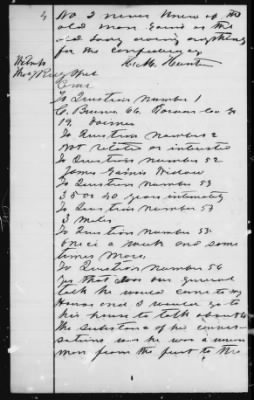 4 No I never knew of the
old man Gains or the
old lady doing anything
for the confederacy
H. M. Hunter
To Question Number 1
66
19. Farmer
To Question Number 2
Not related or interested
To Question Number 52
James Gaines Widow
To Question Number 53
35 or 40 years intimately
To Question Number 54
3 miles
To Question Number 55
Once a week and some
times More
To Question Number 56
Yes that was our general
talk he would come to my
House and I would go to
his house to talk about it
The substance of his conver-
sations was he was a union
man from the first to the